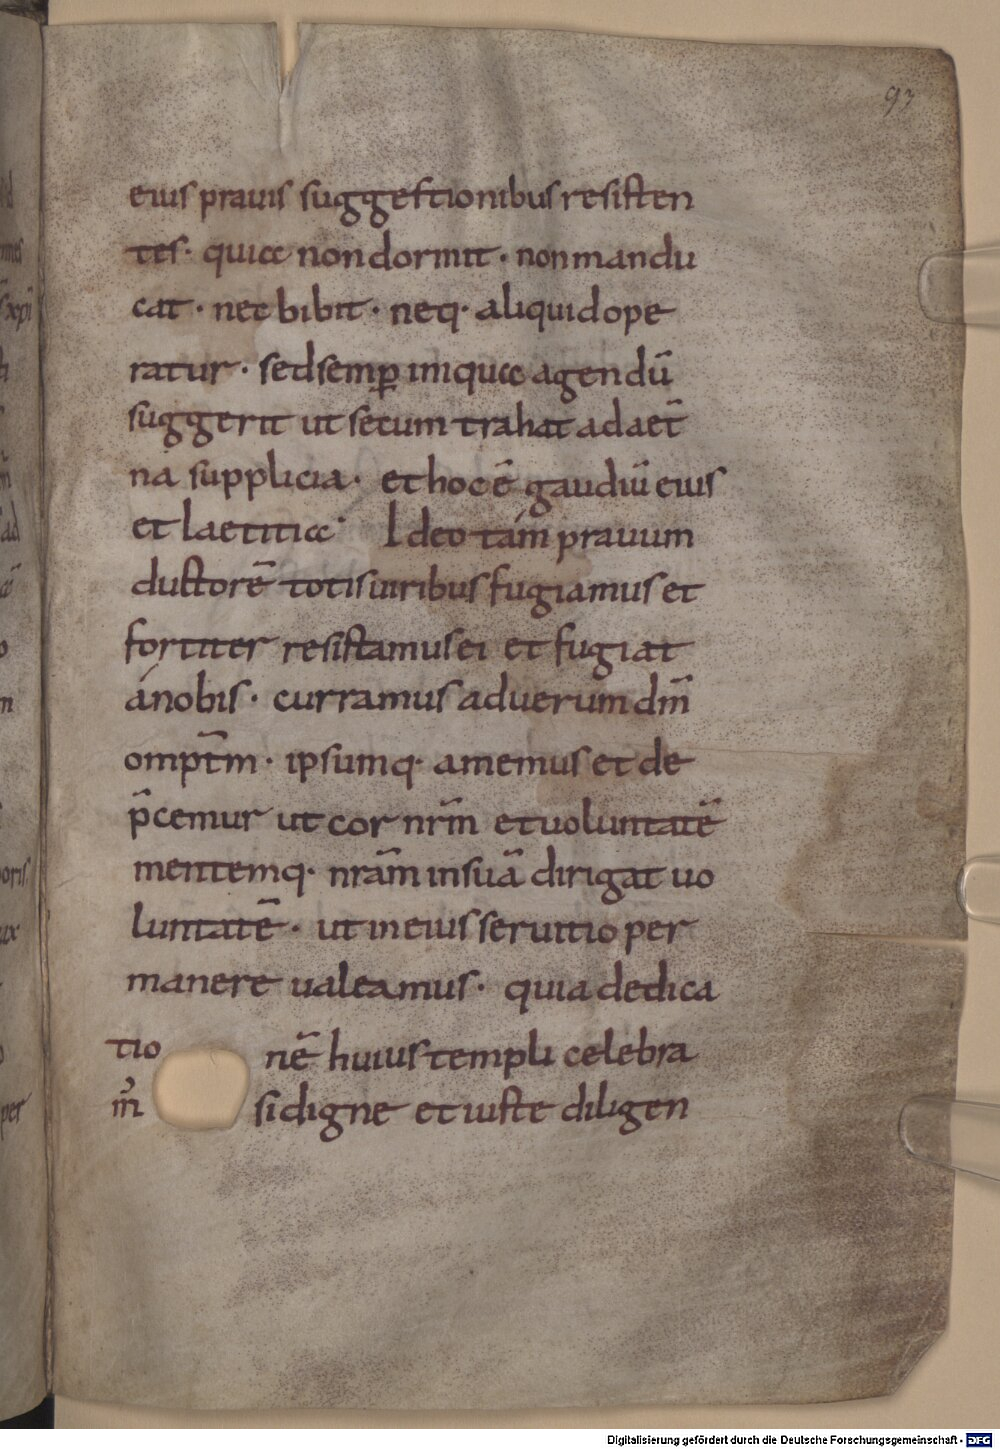 93
eius prauis suggestionibus resisten
tes· quia non dormit· non mandu
cat· nec bibit· neq· aliquid ope
ratur· sed semp̱ iniqua agendū
suggerit ut secum trahat ad aet̄
na supplicia· et hoc ē gaudiū eius
et laetitia· Ideo tám prauum
ductorē totis uiribus fugiamus et
fortiter resistamus ei et fugiat
ánobis· curramus ad uerum dm̄
ompt̄m· ipsumq· amemus et de
p̄cemur ut cor nr̄m et uoluntatē
mentemq· nrām in suā dirigat uo
luntatē· ut in eius seruitio per
manere ualeamus· quia dedica
tio nē huius templi celebra
m̉ si digne et iuste diligen
Digitalisierung gefördert durch die Deutsche Forschungsgemeinschaft - DFG